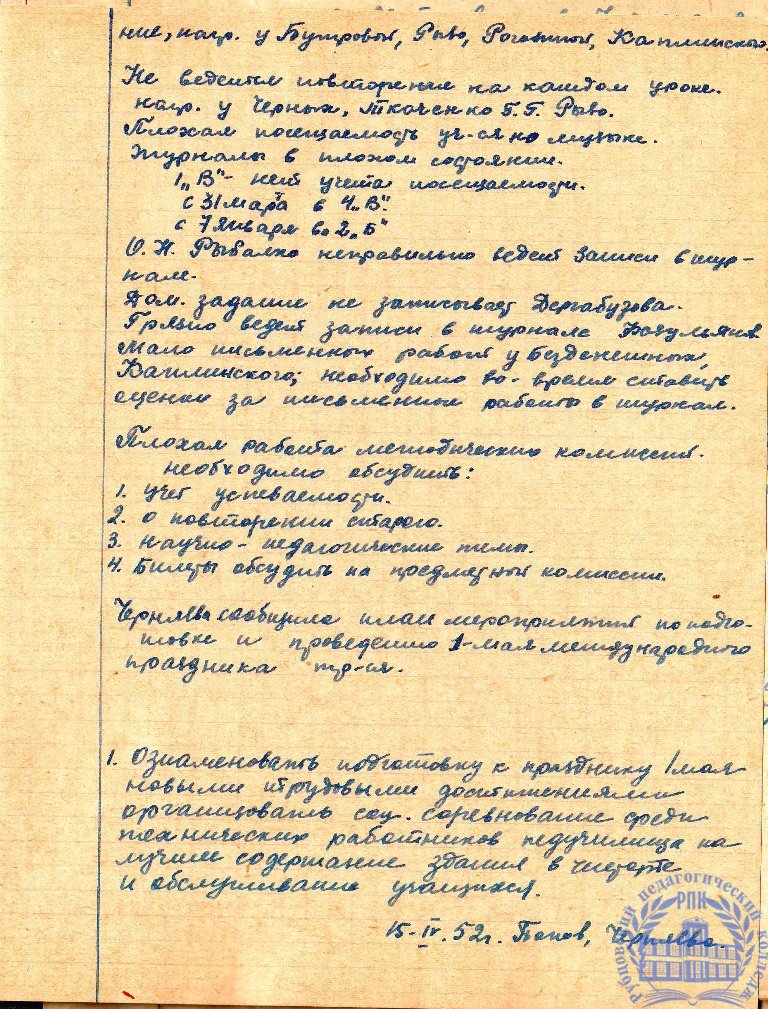 ние, нагр. у Бугровой, Рыво, Рогозиной, Каплинского.
Не ведется повторения на каждом уроке.
нагр. у Черных, Ткаченко Г.Г. Рыво.
Плохая посещаемость уч-ся на музыке.
Журналы в плохом состоянии.
1 „В"- нет учета посещаемости.
с 31 марта в 4 „В".
с 7 января во 2 „Б"
О.Н. Рыбалко неправильно ведет записи в жур-
нале.
Дом. задание не записывает
Грязно ведет записи в журнале
Мало письменных работ у Безденежных,
необходимо во-время ставить
оценки за письменные работы в журнал.
Плохая работа методических комиссий.
необходимо обсудить:
1. Учет успеваемости.
2. о повторении старого.
3. научно-педагогические темы.
4. Билеты обсудить на предметной комиссии.
Черняева сообщила план мероприятий по подго-
товке и проведению 1-мая международного
праздника тр-ся.
1. Ознаменовать подготовку к празднику 1 мая
новыми трудовыми достижениями
организовать соц. соревнование среди
технических работников педучилища на
лучшее содержание здания в чистоте
и обслуживание учащихся.
15-IV.52г. Попов, Черняева.
РПК
педагогический колледж